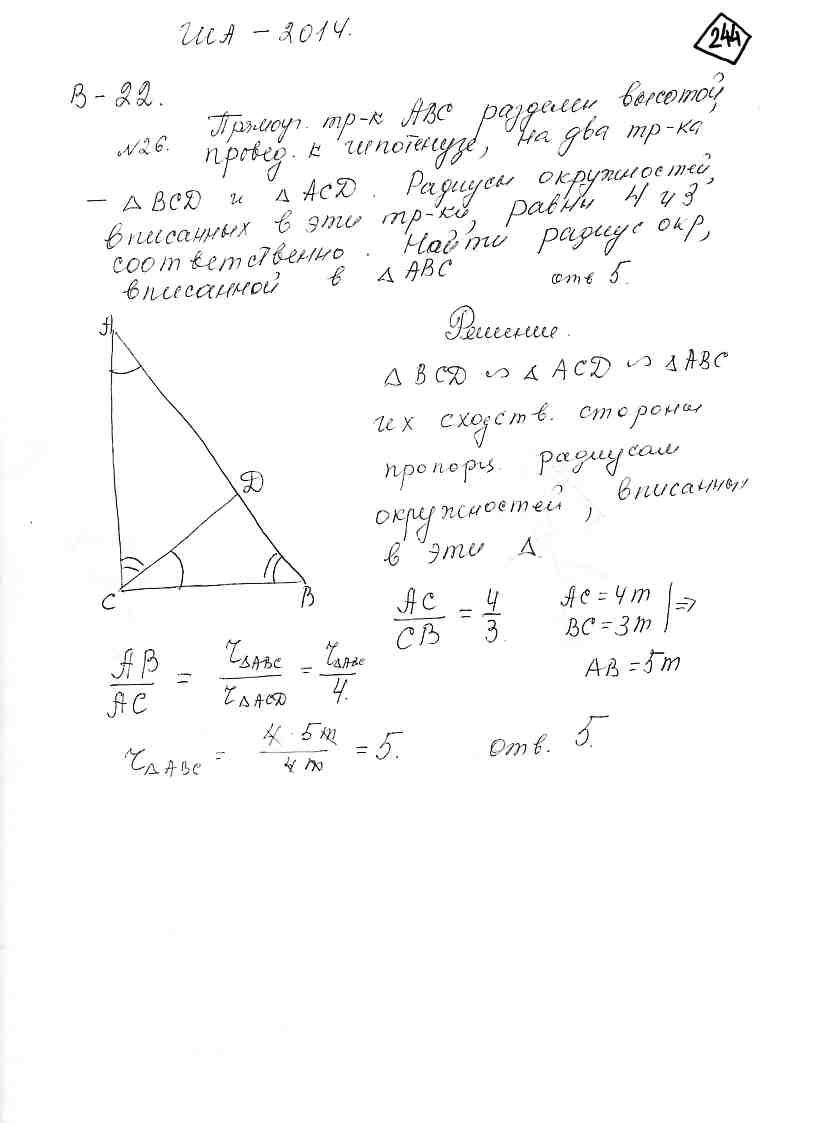 ГИА - 2014.
244
В - 22.
№26. Прямоуг. тр-к АВС разделен высотой,
провед. к гипотенузе, на два тр-ка
— △ BCD и △ ACD. Радиусы окружностей,
вписанных в эти тр-ки, равны 4 и 3
соответственно. Найти радиус окр,
вписанной в △ АВС отв 5.
Решение.
△ BCD ∽ △ ACD ∽ △ ABC
их сходств. стороны
пропорц. радиусам
окружностей, вписанных
в эти △.
A
D
C
B
AC/CB = 4/3. AC = 4m
BC = 3m | ⇒
AB = 5m
AB/AC = r△ABC/r△ACD = r△ABC/4.
r△ABC = 4 · 5m/4m = 5. Отв. 5.